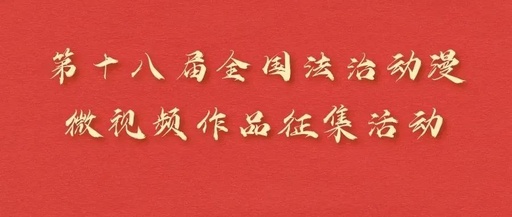 第十八届全国法治动漫
微视频作品征集活动